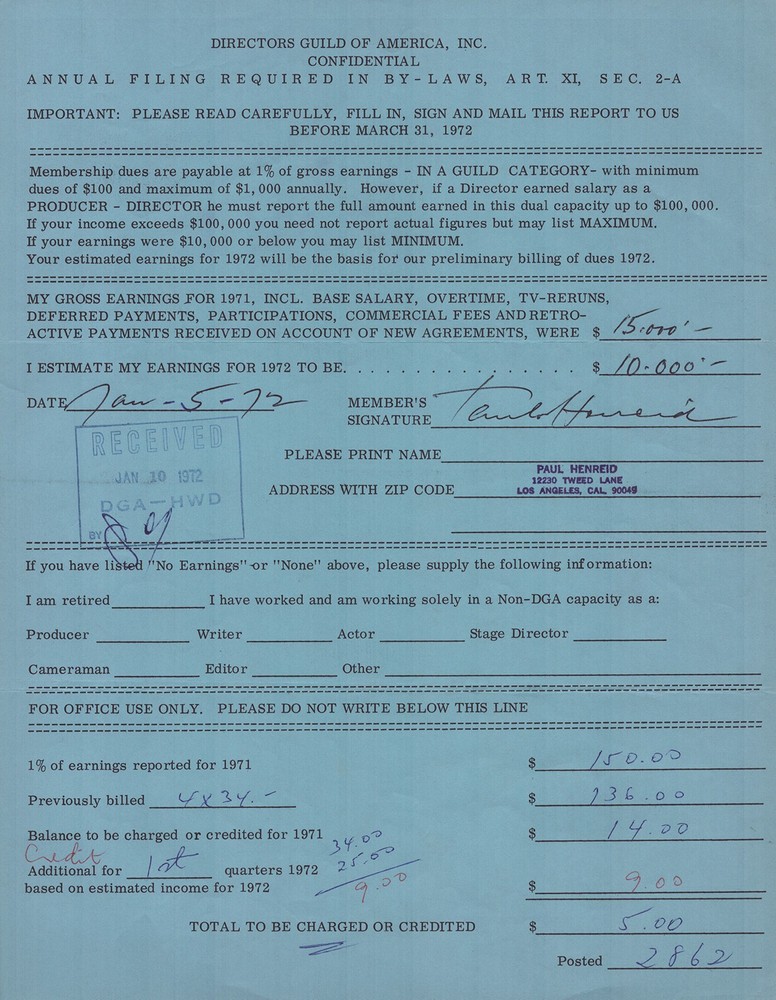 DIRECTORS GUILD OF AMERICA, INC.
CONFIDENTIAL
ANNUAL FILING REQUIRED IN BY-LAWS, ART. XI, SEC. 2-A
IMPORTANT: PLEASE READ CAREFULLY, FILL IN, SIGN AND MAIL THIS REPORT TO US
BEFORE MARCH 31, 1972
Membership dues are payable at 1% of gross earnings - IN A GUILD CATEGORY- with minimum
dues of $100 and maximum of $1,000 annually. However, if a Director earned salary as a
PRODUCER - DIRECTOR he must report the full amount earned in this dual capacity up to $100,000.
If your income exceeds $100,000 you need not report actual figures but may list MAXIMUM.
If your earnings were $10,000 or below you may list MINIMUM.
Your estimated earnings for 1972 will be the basis for our preliminary billing of dues 1972.
MY GROSS EARNINGS FOR 1971, INCL. BASE SALARY, OVERTIME, TV-RERUNS,
DEFERRED PAYMENTS, PARTICIPATIONS, COMMERCIAL FEES AND RETRO-
ACTIVE PAYMENTS RECEIVED ON ACCOUNT OF NEW AGREEMENTS, WERE $ 15.000'-
I ESTIMATE MY EARNINGS FOR 1972 TO BE. . . . . . . . . . . . . . . . . $ 10.000'-
DATE Jan-5-72 MEMBER'S
SIGNATURE Paul Henreid
RECEIVED
JAN 10 1972
DGA-HWD
BY
PLEASE PRINT NAME
PAUL HENREID
12230 TWEED LANE
ADDRESS WITH ZIP CODE LOS ANGELES, CAL. 90049
If you have listed "No Earnings" or "None" above, please supply the following information:
I am retired I have worked and am working solely in a Non-DGA capacity as a:
Producer Writer Actor Stage Director
Cameraman Editor Other
FOR OFFICE USE ONLY. PLEASE DO NOT WRITE BELOW THIS LINE
1% of earnings reported for 1971 $ 150.00
Previously billed 4X34.- $ 136.00
Balance to be charged or credited for 1971 $ 14.00
34.00
25.00
9.00
Credit
Additional for 1st quarters 1972
based on estimated income for 1972 $ 9.00
TOTAL TO BE CHARGED OR CREDITED $ 5.00
Posted 2862